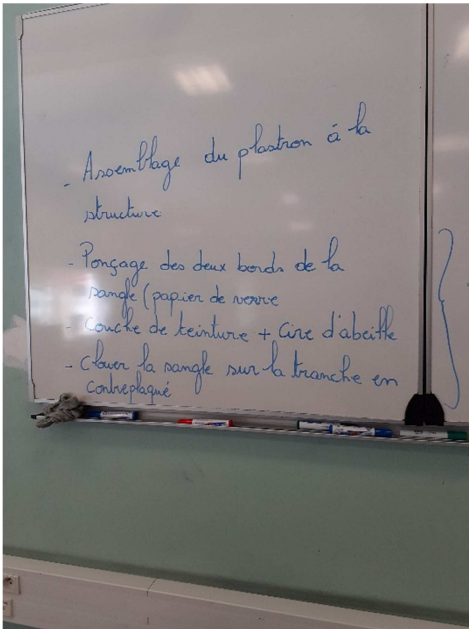 - Assemblage du plastron à la
structure
- Ponçage des deux bords de la
sangle (papier de verre
- Couche de teinture + Cire d'abeille
- Clouer la sangle sur la tranche en
contreplaqué